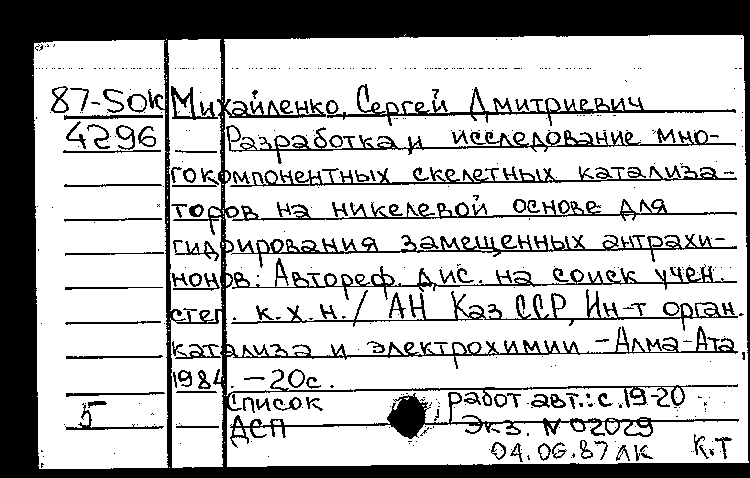 87-5OK Михайленко, Сергей Дмитриевич
4296 Разработка и исследование мно-
гокомпонентных скелетных катализа-
торов на никелевой основе для
гидрирования замещенных антрахи-
нонов: Автореф. дис. на соиск учен.
степ. к.х.н./ АН Каз ССР, Ин-т орган.
катализа и электрохимии -Алма-Ата,
1984. -20с.
5 Список работ авт.: с.19-20
ДСП Экз. N 02029
04.06.87 лк К.Т